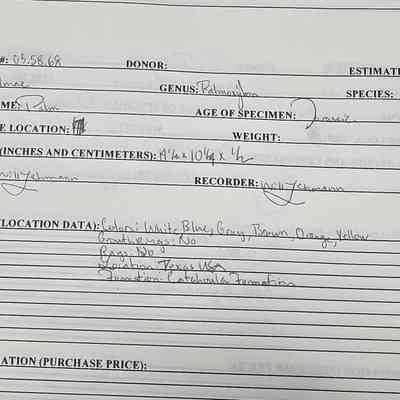 #: 05.58.68 DONOR: ESTIMAT
GENUS: Palmoxylon SPECIES:
ME: Palm AGE OF SPECIMEN:
E LOCATION: WEIGHT:
(INCHES AND CENTIMETERS): x 10 1/4 x 1/2
Will Lehmann RECORDER: Will Lehmann
LOCATION DATA): Colors: White, Blue, Gray, Brown, Orange, Yellow
Growth rings: No
No
Location: Texas USA
Formation: Catahoula Formation
ATION (PURCHASE PRICE):